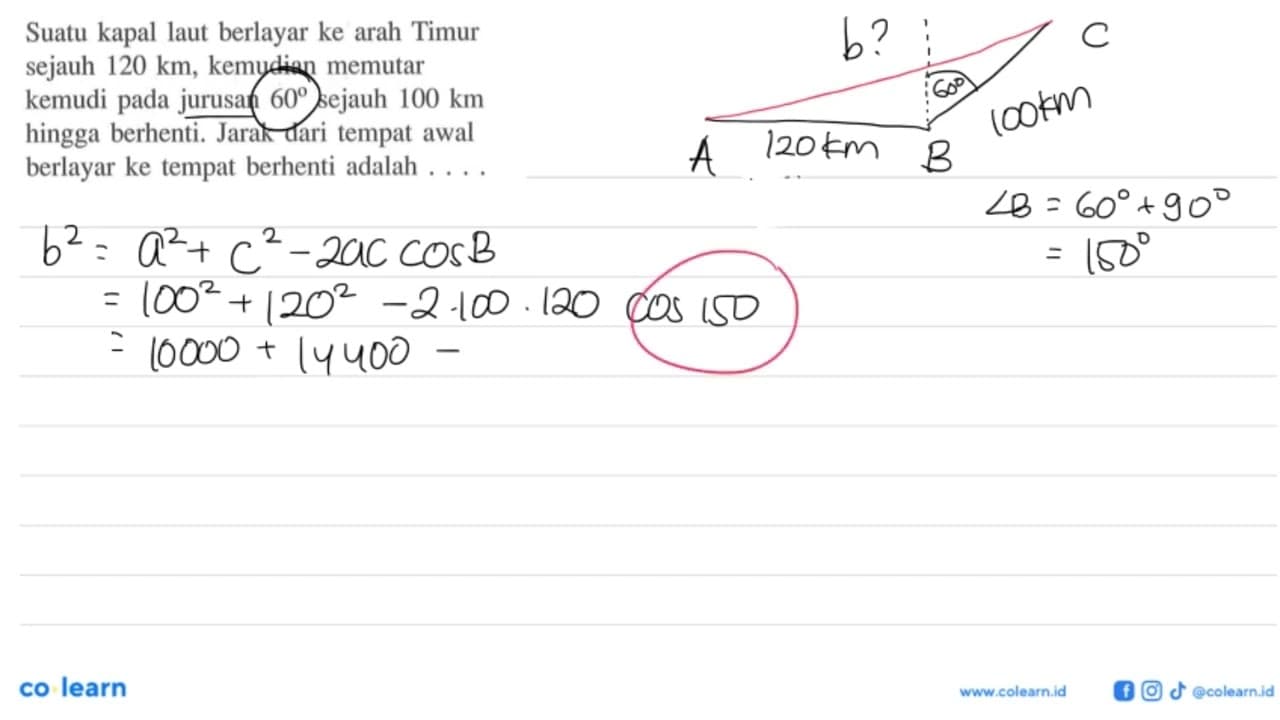 Suatu kapal laut berlayar ke arah Timur
sejauh 120 km, kemudian memutar
kemudi pada jurusan 60° sejauh 100 km
hingga berhenti. Jarak dari tempat awal
berlayar ke tempat berhenti adalah . . . .
b?
C
60°
100 km
A
120 km
B
∠B = 60° + 90°
= 150°
b² = a² + c² - 2ac cos B
= 100² + 120² - 2·100·120 cos 150
= 10000 + 14400 -
co learn
www.colearn.id
@colearn.id